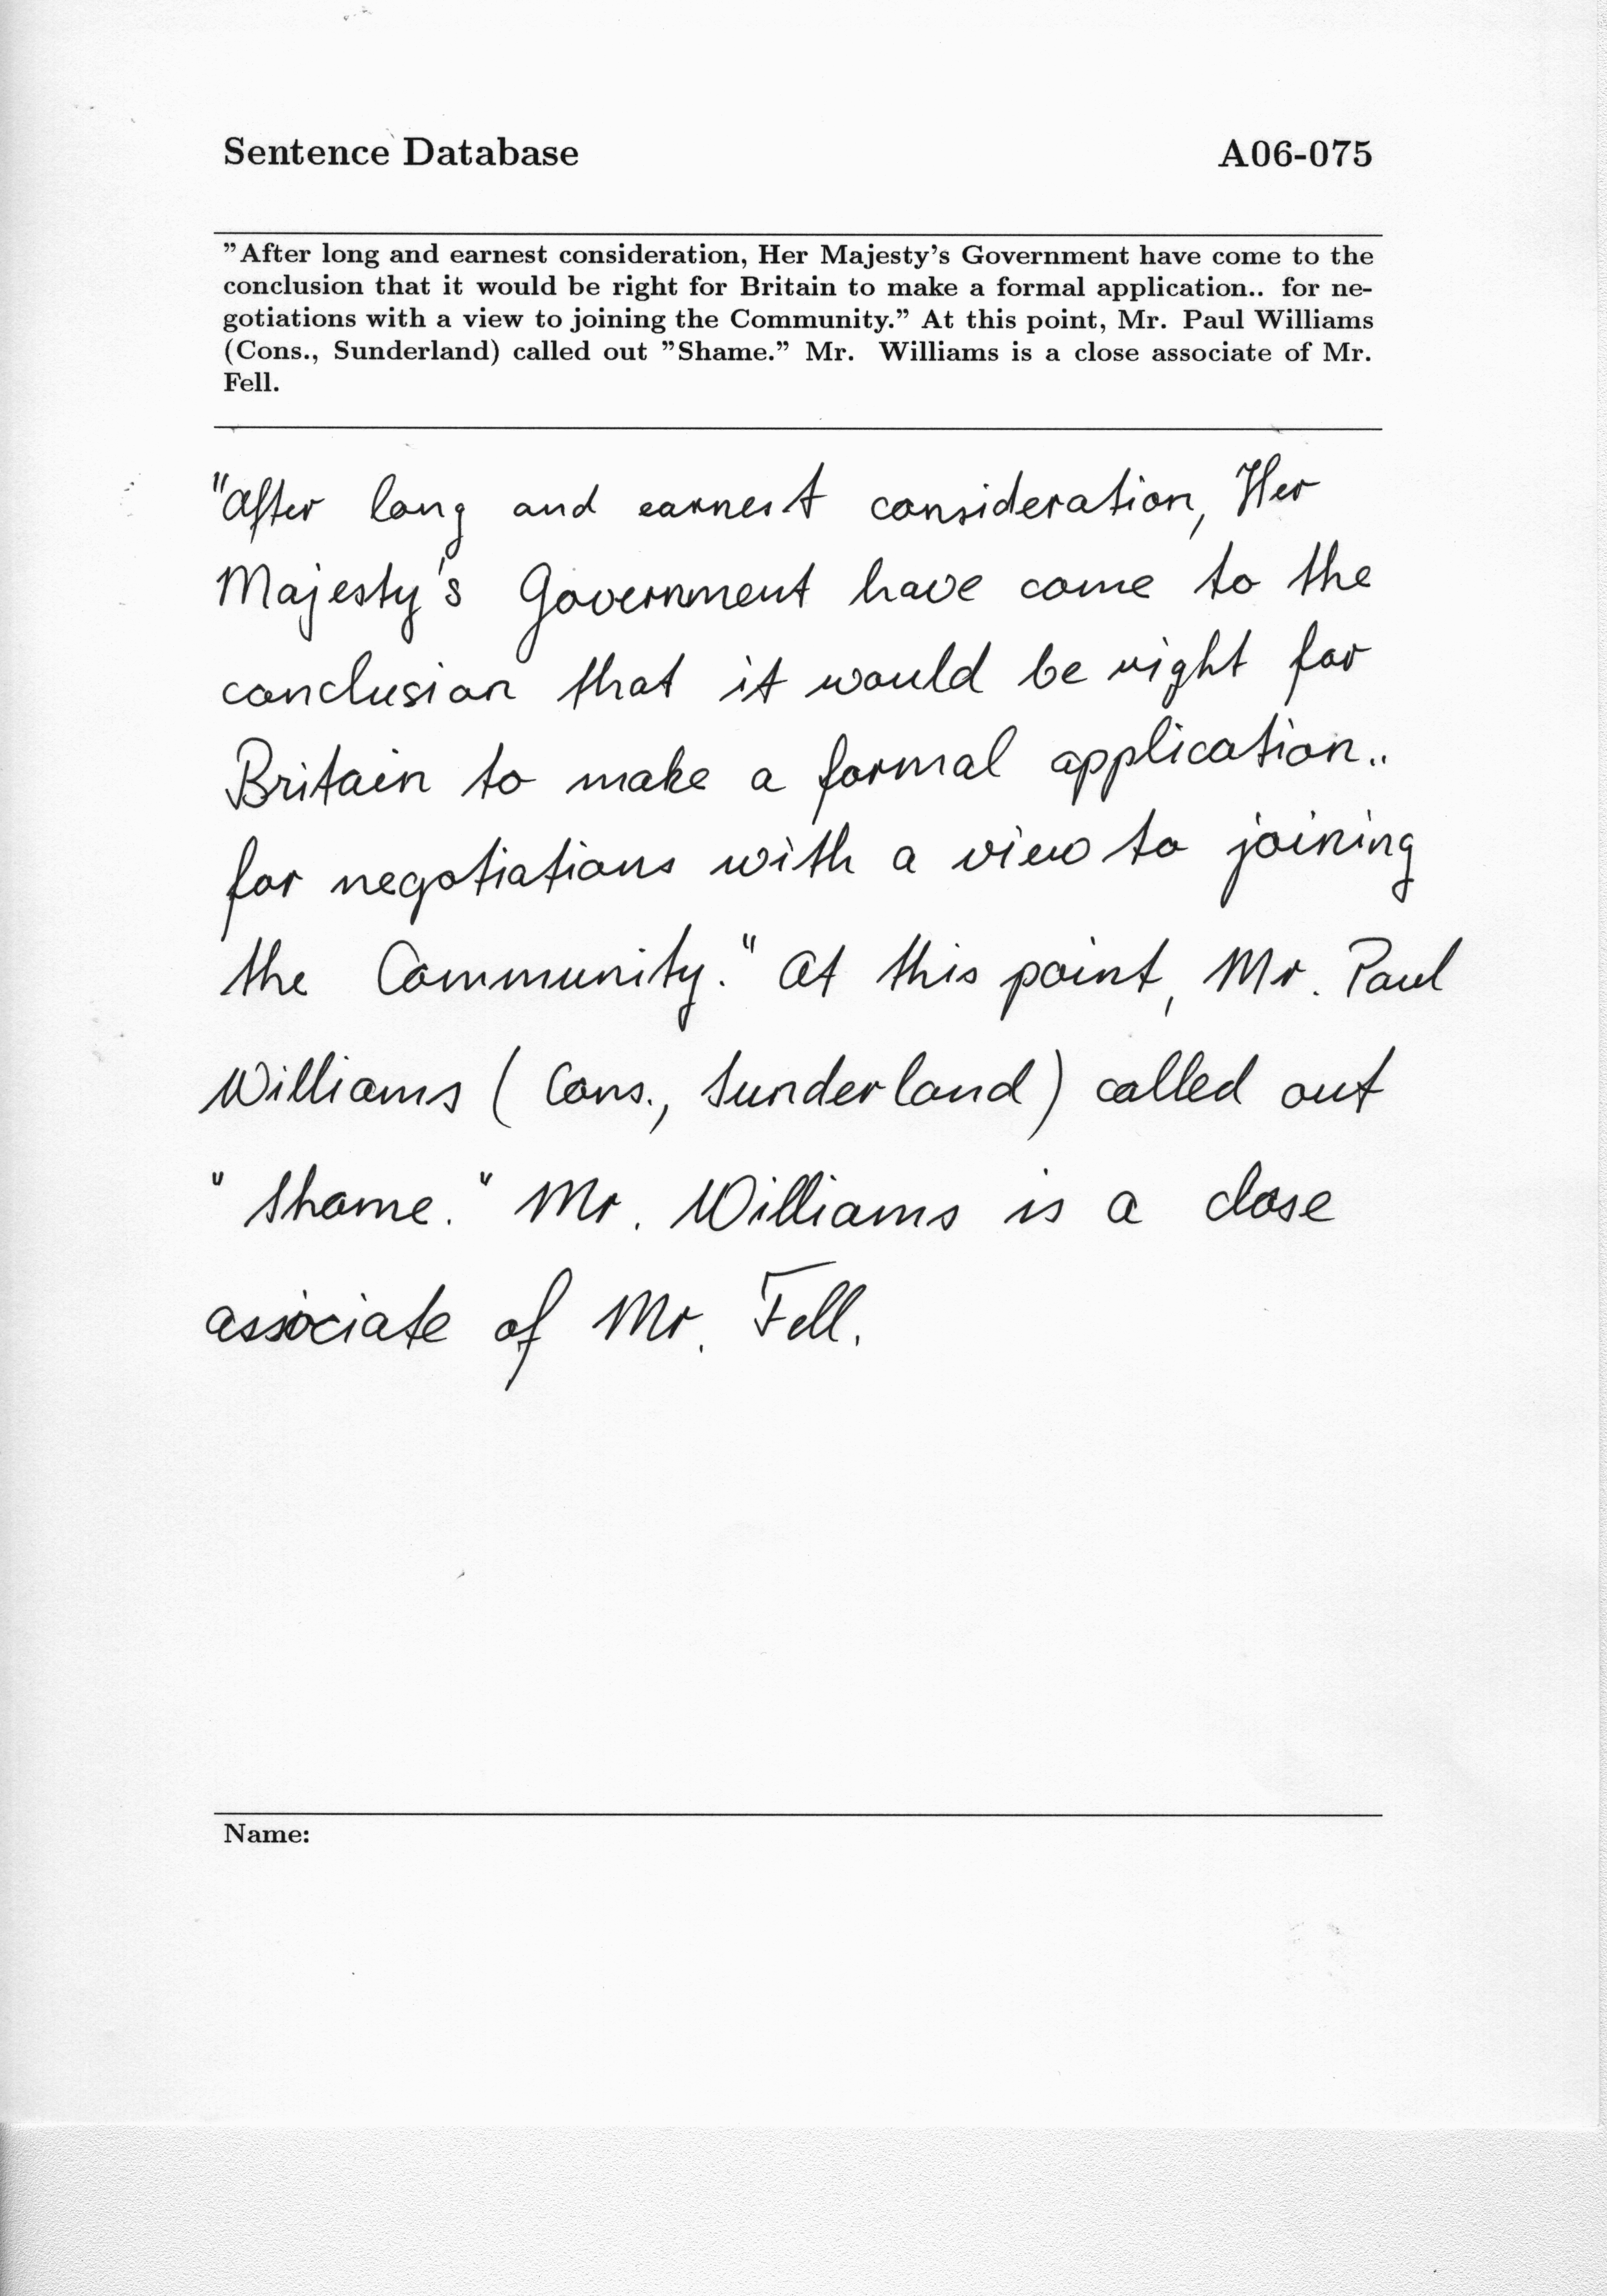 Sentence Database A06-075
"After long and earnest consideration, Her Majesty's Government have come to the
conclusion that it would be right for Britain to make a formal application.. for ne-
gotiations with a view to joining the Community." At this point, Mr. Paul Williams
(Cons., Sunderland) called out "Shame." Mr. Williams is a close associate of Mr.
Fell.
"After long and earnest consideration, Her
Majesty's Government have come to the
conclusion that it would be right for
Britain to make a formal application..
for negotiations with a view to joining
the Community." At this point, Mr. Paul
Williams (Cons., Sunderland) called out
"Shame." Mr. Williams is a close
associate of Mr. Fell.
Name: